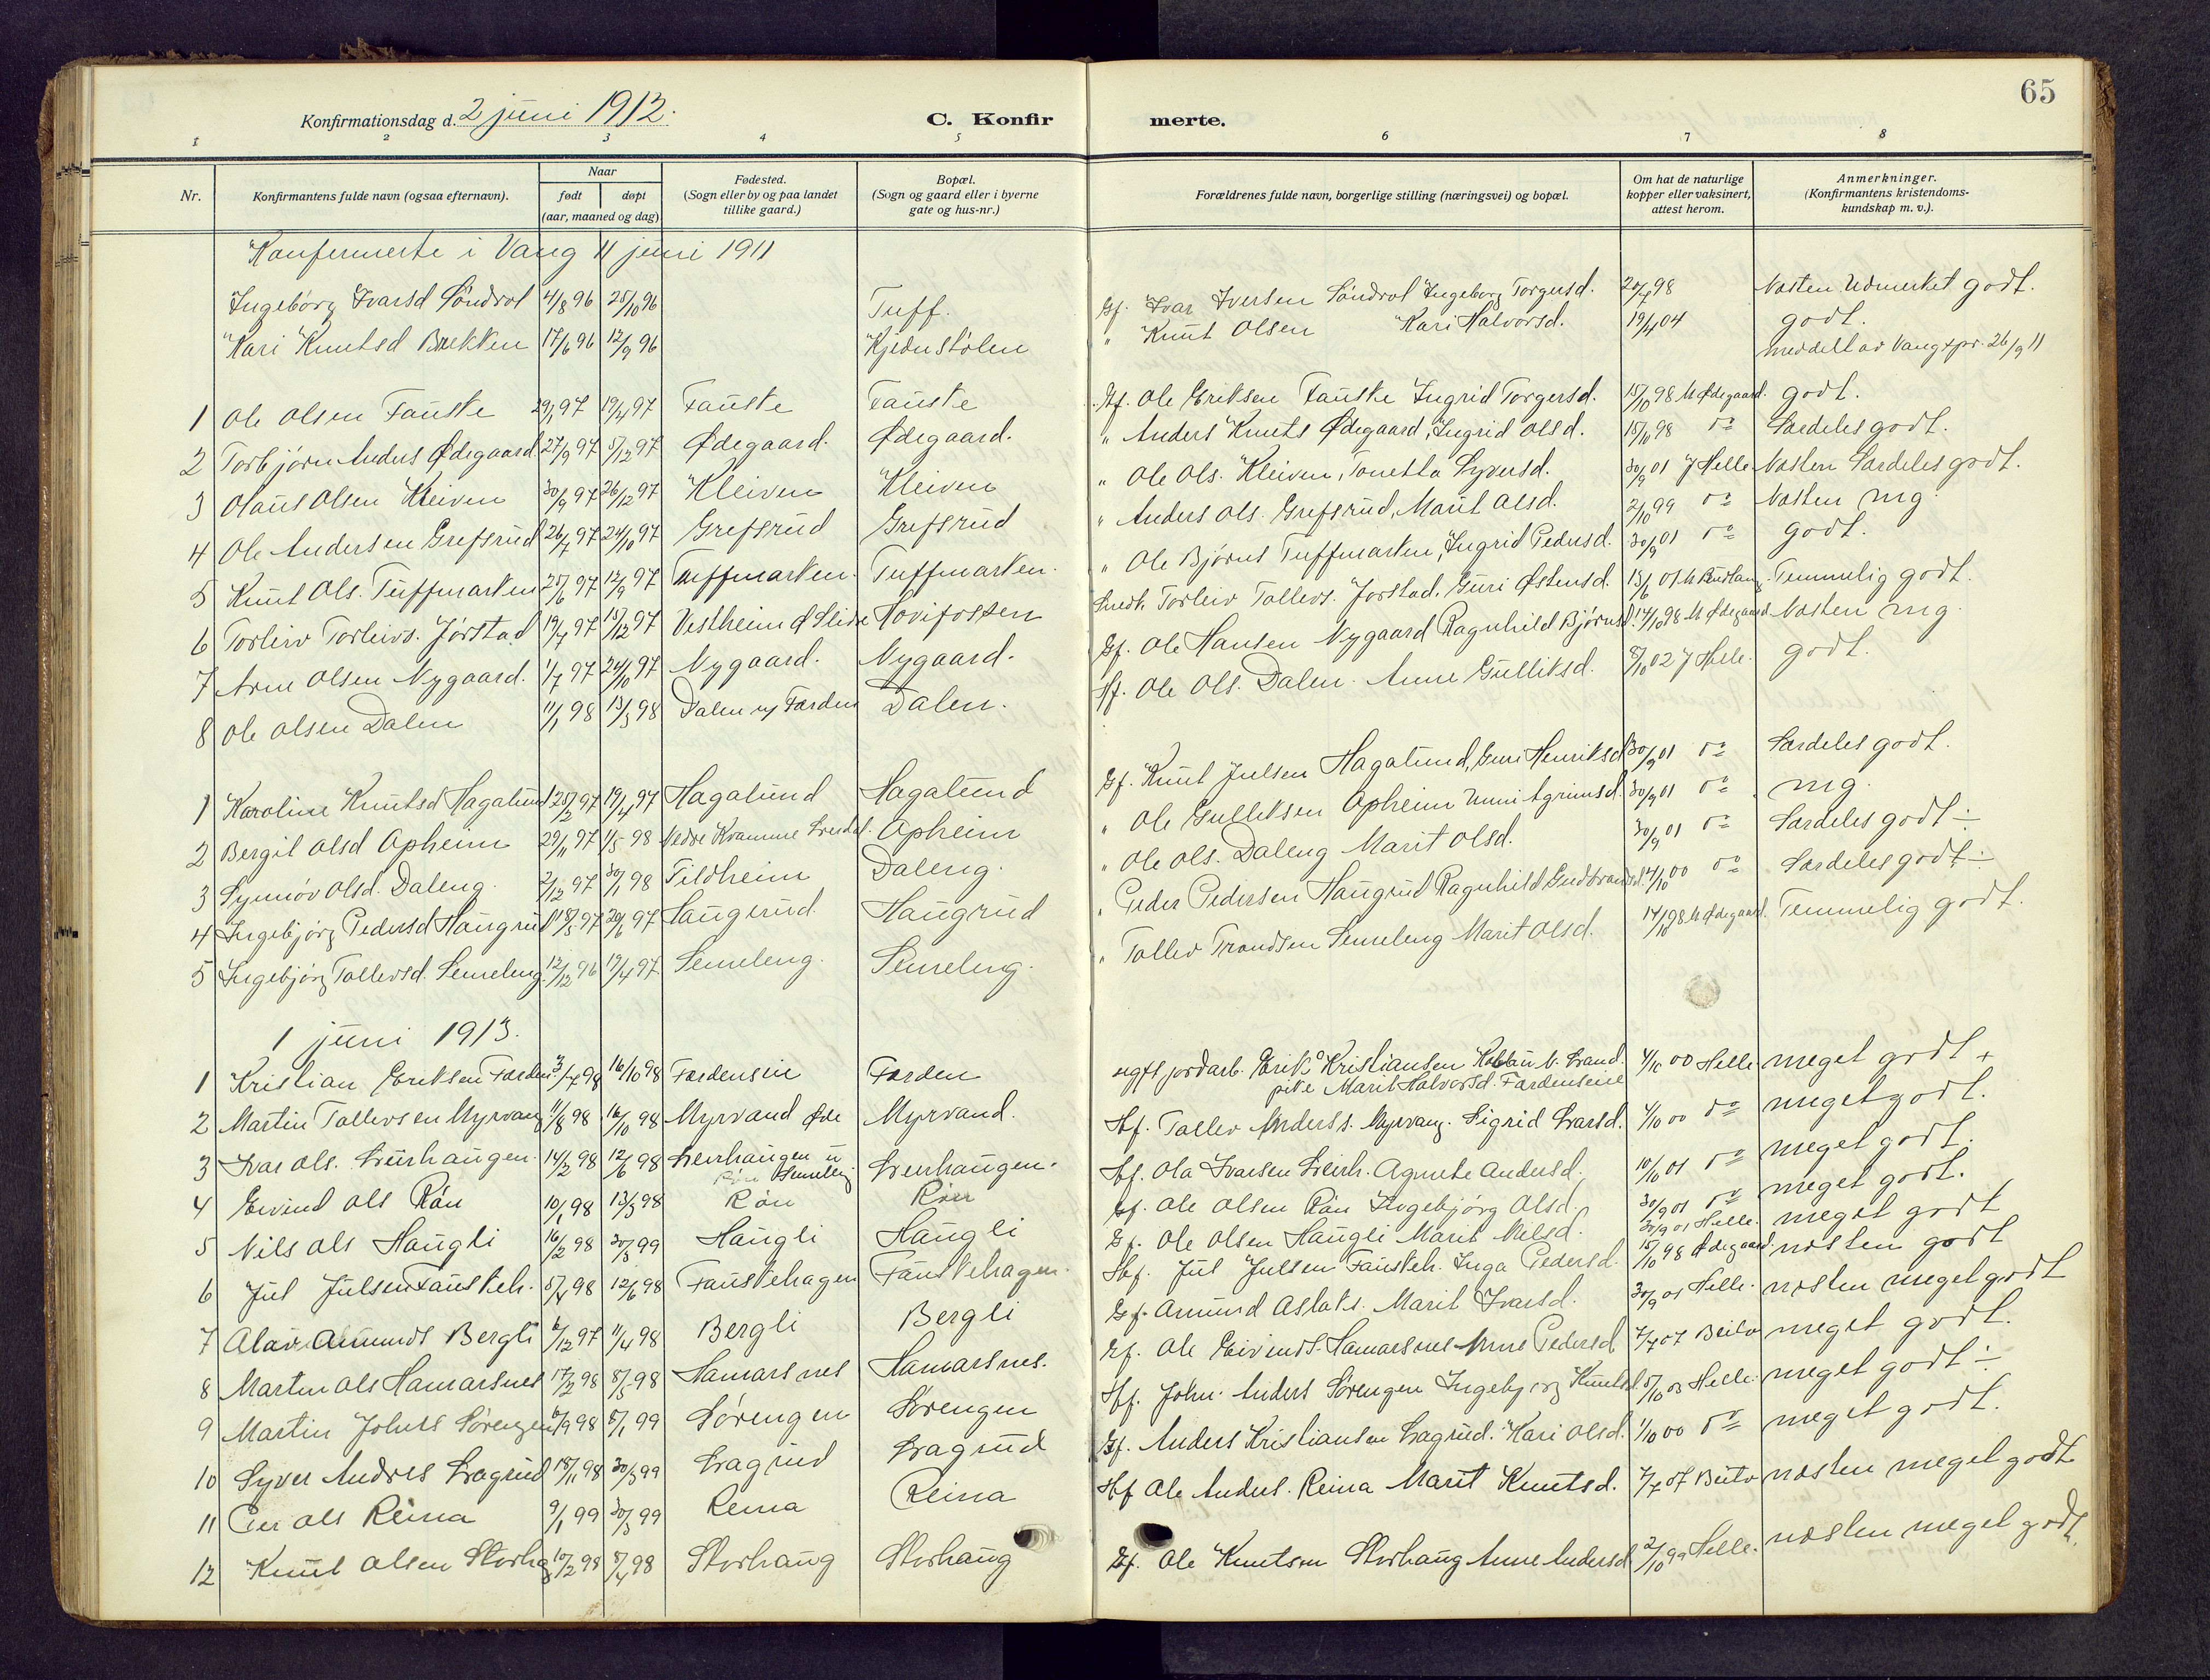 65
Konfirmationsdag d. 2 juni 1912. C. Konfirmerte.
1 2 3 4 5 6 7 8
Nr. Konfirmantens fulde navn (ogsaa efternavn). Naar født døpt (aar, maaned og dag) Fødested. (Sogn eller by og paa landet tillike gaard.) Bopæl. (Sogn og gaard eller i byerne gate og hus-nr.) Forældrenes fulde navn, borgerlige stilling (næringsvei) og bopæl. Om hat de naturlige kopper eller vaksinert, attest herom. Anmerkninger. (Konfirmantens kristendomskundskap m. v.).
Konfermerte i Vang 11 juni 1911
Ingebörg Ivarsd Söndrol 4/8 96 25/10 96 Tuff. Gf. Ivar Iversen Söndrol Ingeborg Torgersd. 98 Næsten Udmerket godt.
Kari Knutsd Bækken 17/6 96 12/9 96 Kjednstölen " Knut Olsen Kari Halvorsd. 19/4 04 godt.
meddelt av Vang spr. 26/9 11
1 Ole Olsen Fauske 29/1 97 19/4 97 Fauske Fauske Gf. Ole Eriksen Fauske Ingrid Torgersd. 15/10 98 M Ødegaard. godt.
2 Torbjörn Anders Ødegaard 27/9 97 5/12 97 Ødegaard. Ødegaard. " Anders Knuts Ødegaard, Ingrid Olsd. 15/10 98 do Særdeles godt.
3 Olaus Olsen Kleiven 30/9 97 26/12 97 Kleiven Kleiven " Ole Ols. Kleiven, Tonetta Syversd. 30/9 01 J Helle Næsten Særdeles godt.
4 Ole Andersen Grefsrud 26/7 97 24/10 97 Grefsrud Grefsrud " Anders Ols. Grefsrud, Marit Olsd. 2/10 99 do Næsten mg.
5 Knut Ols. Tuffmarken 25/6 97 12/9 97 Tuffmarken. Tuffmarken. " Ole Björns Tuffmarken, Ingrid Pedersd. 30/9 01 do godt.
6 Torleiv Torleivs. Jörstad 19/7 97 15/12 97 Vestheim Ø Slidre Hovifossen Smedt. Torleiv Tollevs. Jorstad. Guri Østensd. 15/6 01 Temmelig godt.
7 Arne Olsen Nygaard. 1/7 97 24/10 97 Nygaard. Nygaard. Gf. Ole Hansen Nygaard Ragnhild Björnsd. 14/10 98 M Ødegaard Næsten mg.
8 Ole Olsen Dalen 11/1 98 13/3 98 Dalen u/ Færden Dalen. Hf. Ole Ols. Dalen. Anne Gulliksd. 8/10 02 J Helle. godt.
1 Karoline Knutsd Hagalund 25/2 97 19/4 97 Hagalund Hagalund Gf. Knut Julsen Hagalund, Guri Henriksd 30/9 01 do Særdeles godt.
2 Bergit Olsd Opheim 29/11 97 1/5 98 Nedre Kvamme Opheim " Ole Gulleksen Opheim Unni Agrimsd. 30/9 01 do mg.
3 Synnöv Olsd. Daleng. 2/12 97 30/1 98 Tildheim Daleng. " Ole Ols. Daleng Marit Olsd. 30/9 01 do Særdeles godt ÷
4 Ingebjörg Pedersd Haugrud 18/5 97 20/6 97 Haugrud. Haugrud " Peder Pedersen Haugrud Ragnhild Gudbrandsd. 4/10 00 do Særdeles godt ÷
5 Ingebjörg Tollevsd. Semeleng 12/12 96 19/4 97 Semeleng. Semeleng. " Tollev Trondsen Semeleng Marit Olsd. 14/10 98 M Ødegaard. Temmelig godt.
1 juni 1913.
1 Kristian Eriksen Færden 98 16/10 98 Færdenseie Færden ugift jordarb. Erik Kristiansen pike Marit Halvorsd. Færdenseie 4/10 00 Helle meget godt +
2 Martin Tollevsen Myrvang 11/8 98 16/10 98 Myrvand Øde Myrvand. Hf. Tollev Anderss. Myrvang. Sigrid Ivarsd. 4/10 00 do meget godt.
3 Ivar Ols. Leirhaugen. 14/2 98 12/6 98 Leirhaugen u Semeleng Leirhaugen. Hf. Ola Ivarsen Leirh. Agnete Andersd. 10/10 01 do meget godt.
4 Eivind Ols Rön 10/1 98 13/3 98 Rön Rön Gf. Ole Olsen Rön Ingebjörg Olsd. 30/9 01 do meget godt.
5 Nils Ols Haugli 16/2 98 30/3 99 Haugli Haugli Gf. Ole Olsen Haugli Marit Nilsd. 30/9 01 Helle. meget godt
6 Jul Julsen Fauskeh. 5/4 98 12/6 98 Fauskehagen Fauskehagen. Hf. Jul Julsen Fauskeh. Inga Pedersd. 15/10 98 Ødegaard. næsten godt
7 Olav Amunds Bergli 6/12 97 11/4 98 Bergli Bergli Gf. Amund Aslaks. Marit Ivarsd. 30/9 01 Helle. næsten meget godt
8 Martin Ols Hamarsnes 17/2 98 8/5 98 Hamarsnes Hamarsnes. Gf. Ole Eivends. Hamarsnes Anne Pedersd 7/7 07 Beito meget godt.
9 Martin Johns Sörengen 6/9 98 8/1 99 Sörengen Sörengen Hf. John Anders Sörengen Ingebjorg Knutsd. 5/10 03 Helle. meget godt ÷
10 Syver Andres Lagrud 18/11 98 30/3 99 Lagrud Lagrud Gf. Anders Kristiansen Lagrud. Kari Olsd. 1/10 00 do meget godt.
11 Per Ols Reina 9/1 99 30/3 99 Reina Reina Hf Ole Anders. Reina Marit Knutsd. 7/7 07 Beito næsten meget godt
12 Knut Olsen Storhg 10/2 98 8/4 98 Storhaug Storhaug Gf. Ole Knutsen Storhaug Anne Andersd 2/10 99 Helle. næsten meget godt.